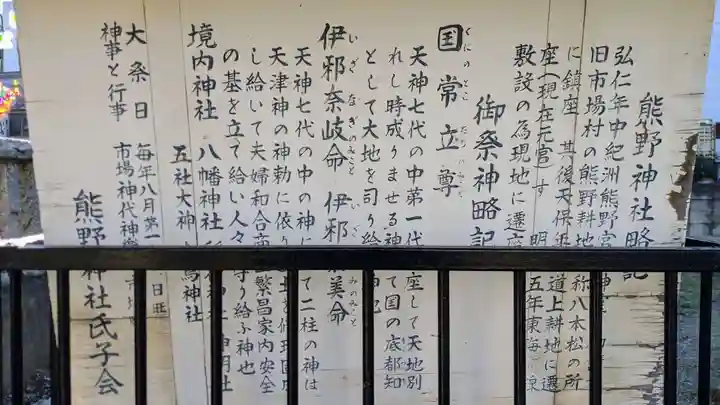 熊野神社略記
弘仁年中紀洲熊野
旧市場村の熊野耕地 称八本松の所
に鎮座 其後天保年 道上耕地に遷
座(現在元宮)す 明 五年東海 線
敷設の為現地に遷座
御祭神略記
国常立尊
くにのとこたちのみこと
天神七代の中第一代 座して天地別
れし時成りませる神 て国の底都知
として大地を司り給
伊邪奈岐命 伊邪 美命
いざなぎのみこと いざ みのみこと
天神七代の中の神に て二柱の神は
天津神の神勅に依り
し給いて夫婦和合商 繁昌家内安全
の基を立て給い人々 守り給ふ神也
境内神社 八幡神社 神明社
五社大神 神社
大祭日 毎年八月第一 日曜
神事と行事 市場神代神楽
熊野神社氏子会